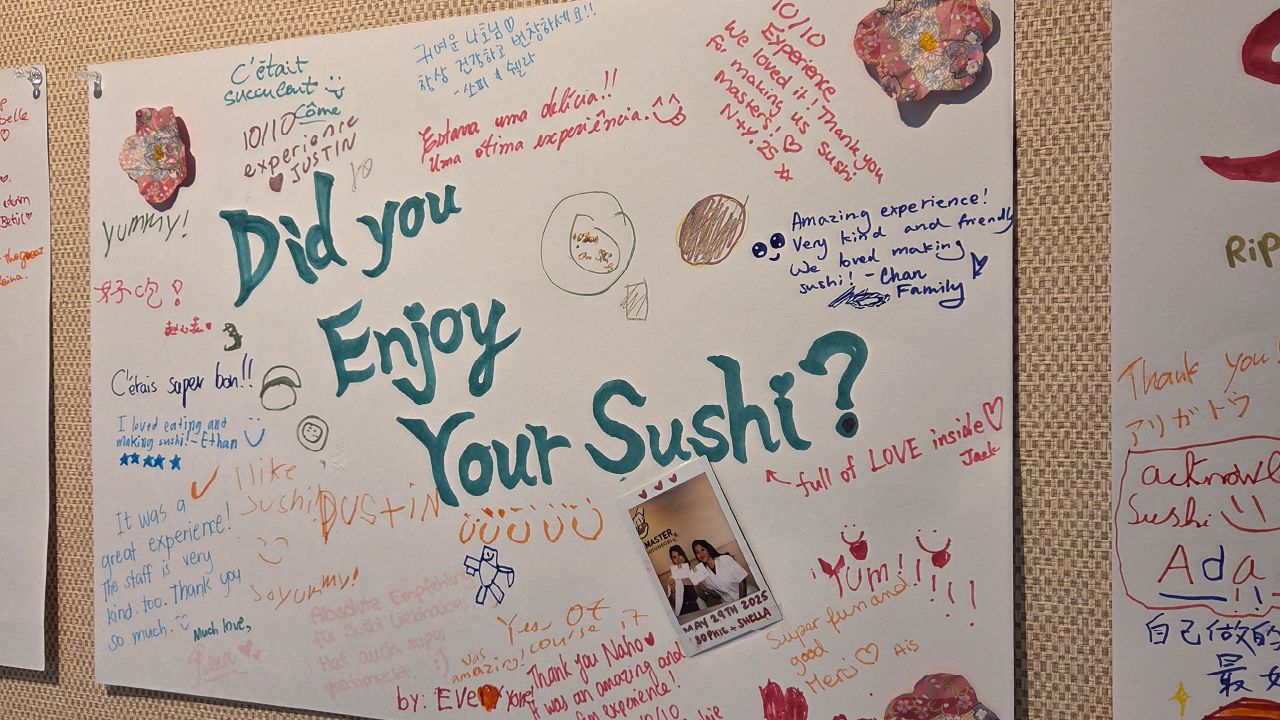 belle
Betül
C'était
succulent
Côme
10/10
experience
JUSTIN
10
귀여운 나호님♡
항상 건강하고 번창하세요!!
- 소피 & 쉘라
Estava uma delícia!!
Uma ótima experiência.
10/10
Experience
We loved it! Thank you
for making us sushi
masters! ♡
N+y. 25
yummy!
好吃!
Did you
Enjoy
Your Sushi?
Amazing experience!
Very kind and friendly
We loved making
sushi! - Chan
Family
C'étais super bon!!
I loved eating and
making sushi! - Ethan
★★★★★
I like
Sushi!
DUStiN
It was a
great experience!
The staff is very
kind. too. Thank you
so much.
Much love,
Rina
So yummy!
full of LOVE inside♡
Jack
MASTER
MAY 29TH 2025
SOPHIE + SHELLA
Yum!!!!!
Absolute Empfehlung
für Sushi Liebhaber
Hat auch super
geschmeckt. :)
Yes Of
course it
was
amazing!
by: EVERYone!
Thank you Naho♥
It was an amazing and
fun experience!
10/10
Super fun and
good
Merci ♡ Ais
Rip
Thank you!
アリガトウ
acknowl
Sushi
Ada
自己做的
最好